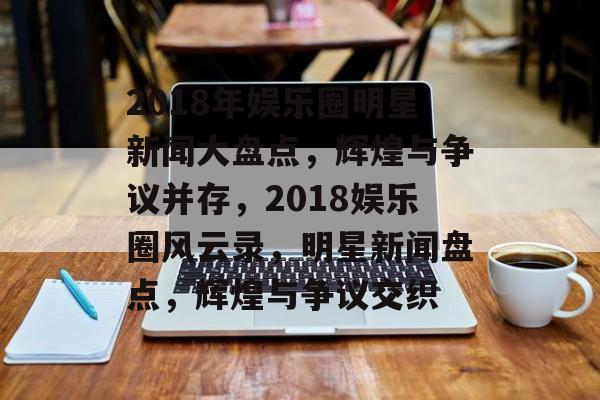 2018年娱乐圈明星
新闻大盘点，辉煌与争
议并存，2018娱乐
圈风云录，明星新闻盘
点，辉煌与争议交织